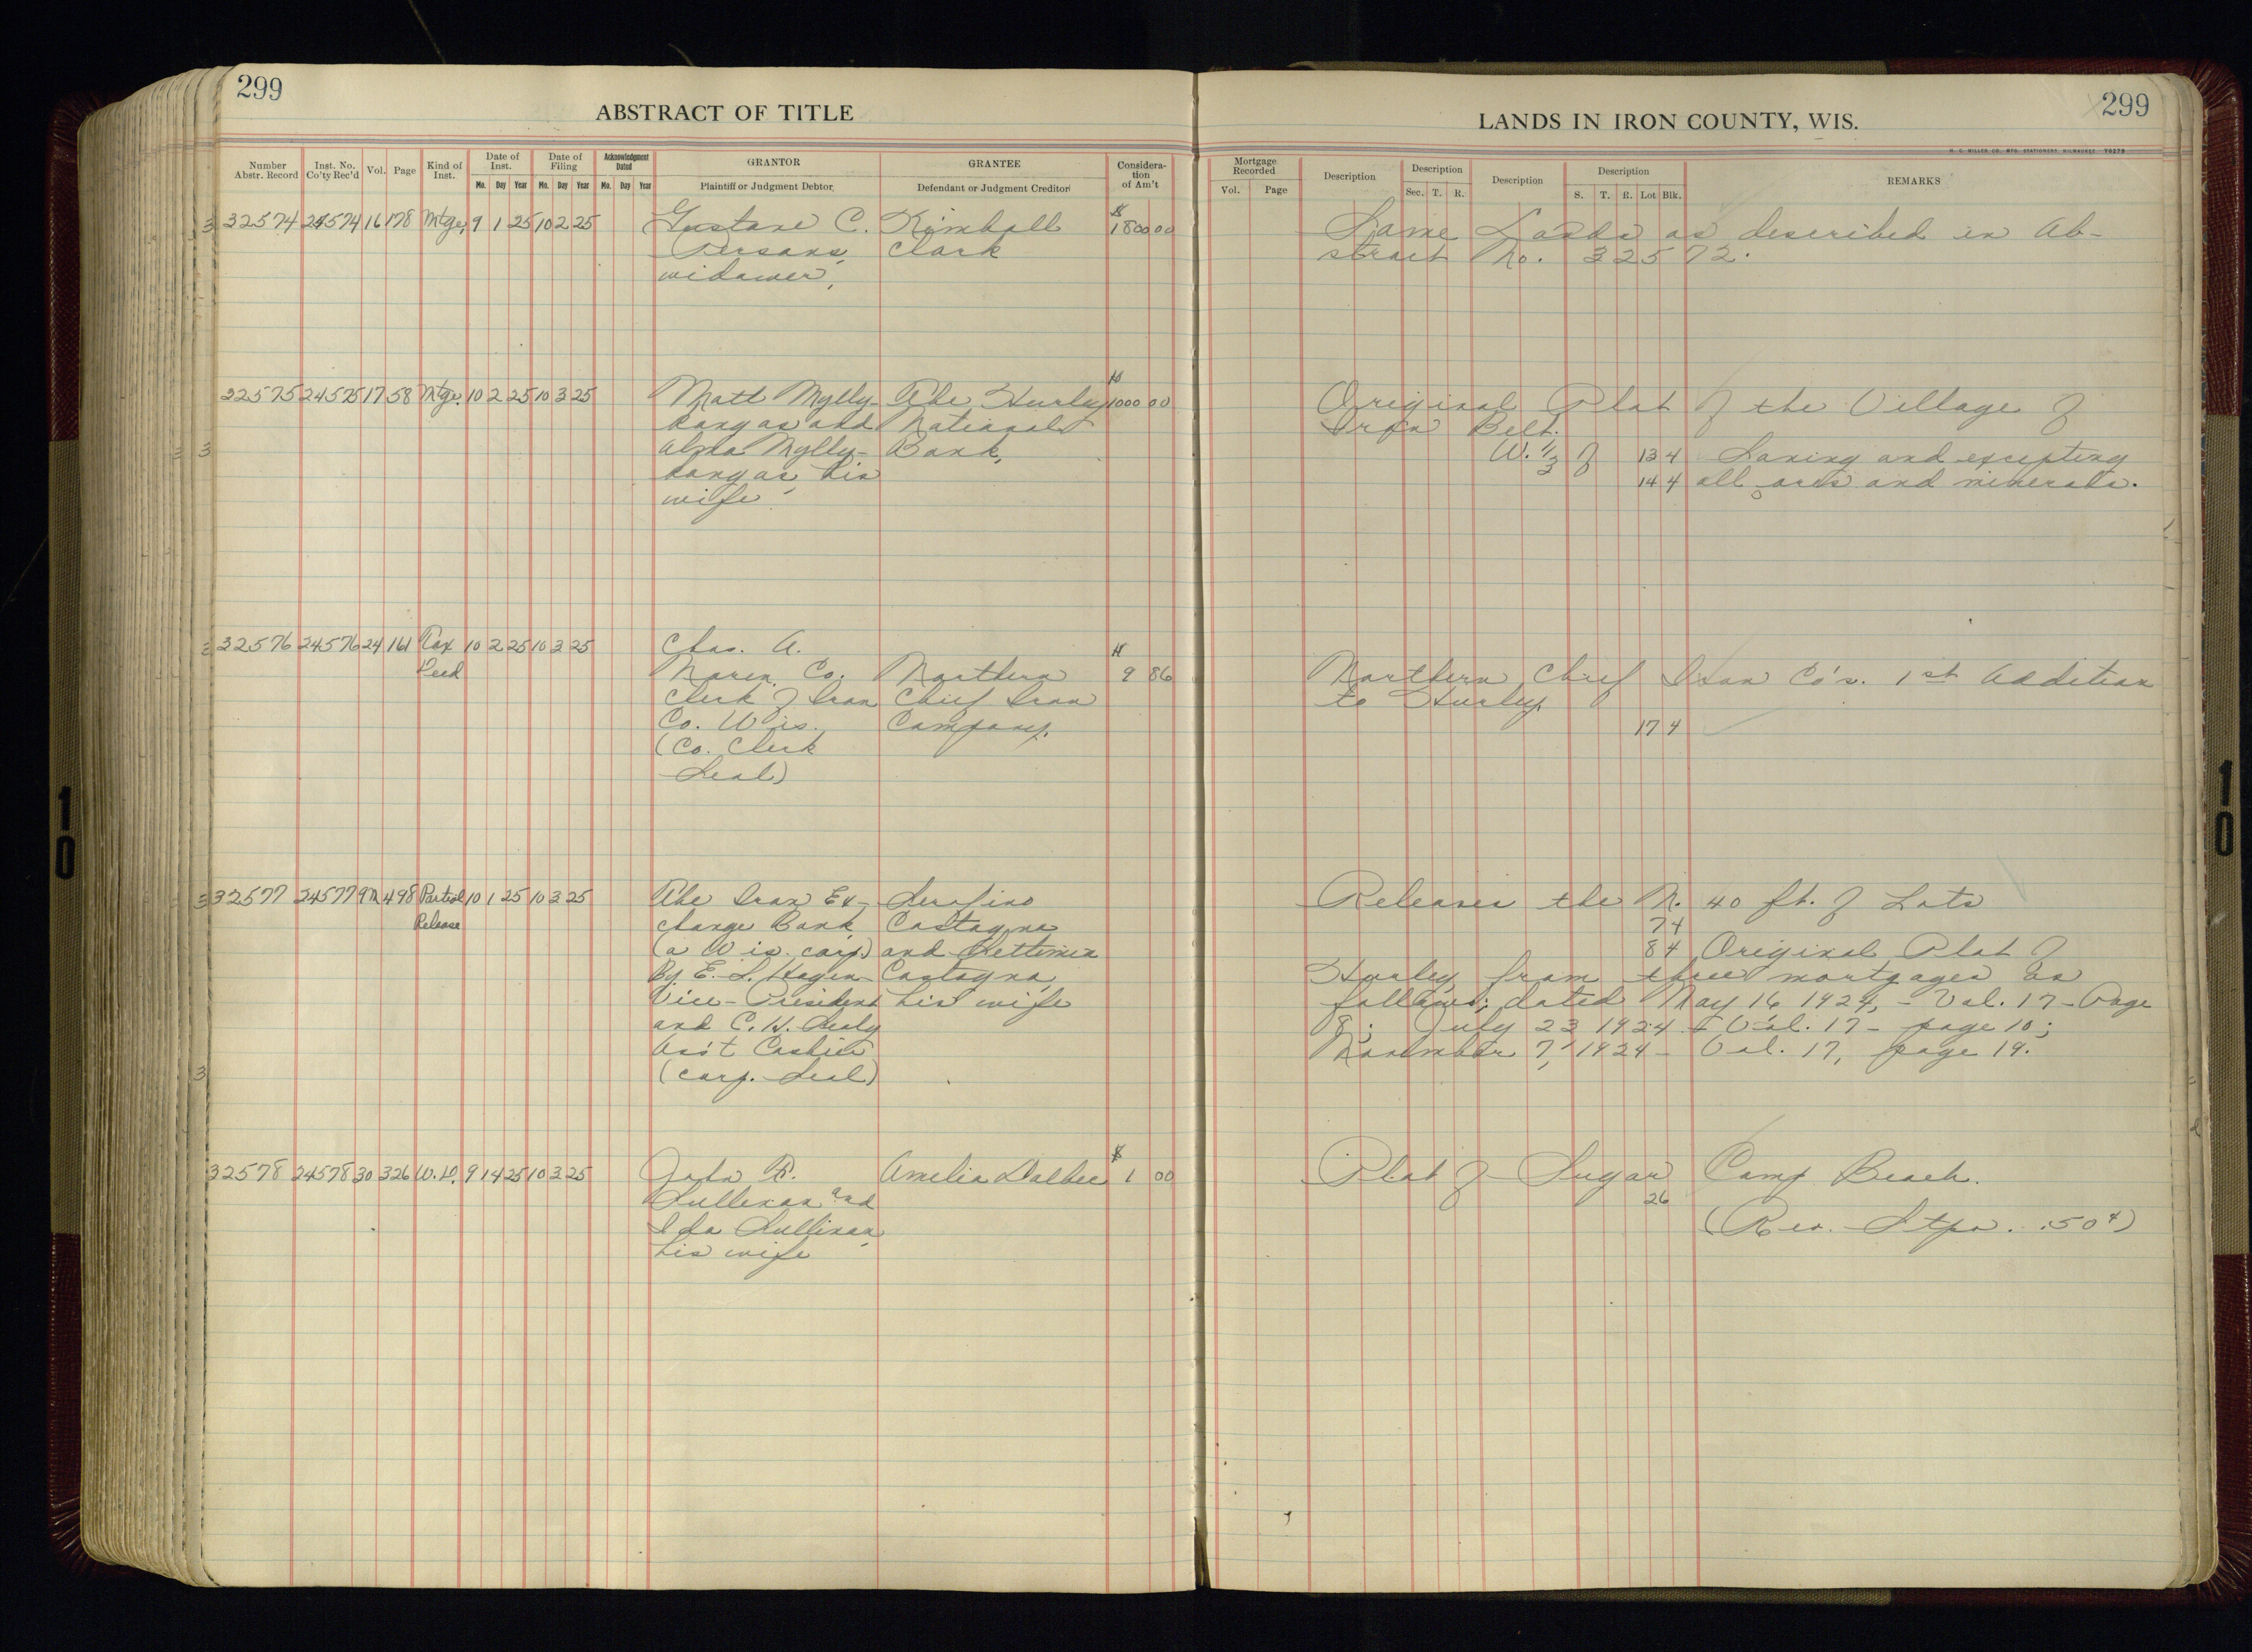 299
ABSTRACT OF TITLE
Number Abstr. Record | Inst. No. Co'ty Rec'd | Vol. | Page | Kind of Inst. | Date of Inst. Mo. Day Year | Date of Filing Mo. Day Year | Acknowledgment Dated Mo. Day Year | GRANTOR Plaintiff or Judgment Debtor | GRANTEE Defendant or Judgment Creditor | Consideration of Am't
32574 24574 16 178 Mtge. 9 1 25 10 2 25 Gustave C. Kimball $1800 00
Persons, Clark
widower,
32575 24575 17 58 Mtge. 10 2 25 10 3 25 Matt Mylly- The Hurley $1000 00
kangas and National
Alma Mylly- Bank,
kangas, his
wife
32576 24576 24 161 Tax 10 2 25 10 3 25 Chas. A.
Deed Noren, Co. Northern $9 86
Clerk of Iron Chief Iron
Co. Wis. Company.
(Co. Clerk
Seal)
32577 24577 9M 498 Partial 10 1 25 10 3 25 The Iron Ex- Serafino
Release change Bank Castagna
(a Wis. corp.) and Settimia
By E. S. Hagen Castagna,
Vice-President his wife
and C. H.
Ass't Cashier
(corp. Seal)
32578 24578 30 326 W.D. 9 14 25 10 3 25 John R. Amelia Dalbec $1 00
Sullivan and
Ida Sullivan,
his wife
299
LANDS IN IRON COUNTY, WIS.
H. C. MILLER CO., MFG. STATIONERS, MILWAUKEE
Mortgage Recorded Vol. Page | Description | Description Sec. T. R. | Description | Description S. T. R. Lot Blk. | REMARKS
Same Lands as described in Ab-
stract No. 32572.
Original Plat of the Village of
Iron Belt.
W. 1/3 of 13 4 Saving and excepting
14 4 all ores and minerals.
Northern Chief Iron Co's. 1st Addition
to Hurley.
17 4
Releases the N. 40 ft. of Lots
7 4
8 4 Original Plat of
Hurley from three mortgages as
follows: dated May 16 1924, - Vol. 17 - Page
8; July 23 1924 - Vol. 17 - page 10;
November 7, 1924 - Vol. 17, page 19.
Plat of Sugar Camp Beach.
26
(Rev. Stps. .50¢)
10
10